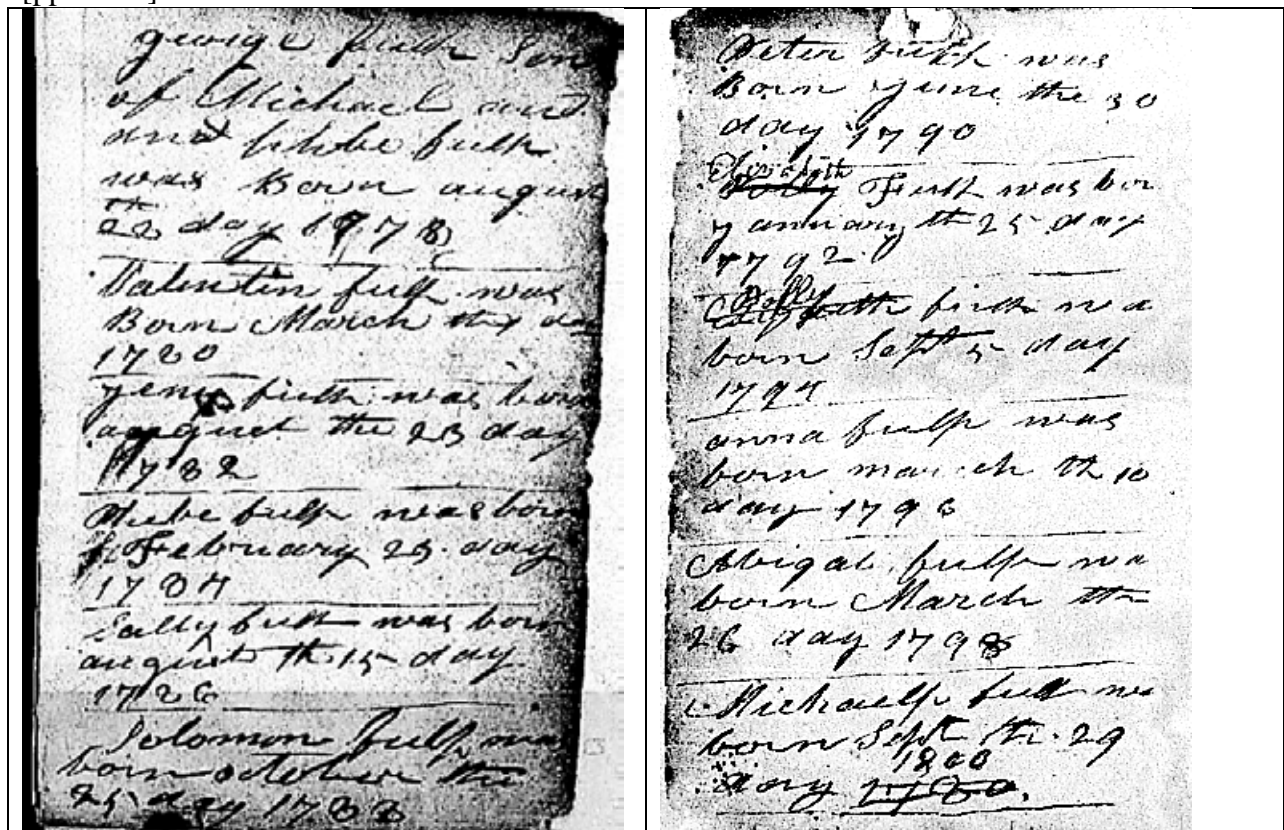 george fulp Son
of Michael and
and phebe fulp
was Born august
the
22 day 1778
Valentin fulp was
Born March the 4 da
1780
fulp was born
august the 23 day
1782
Phebe fulp was born
February 23 day
1784
Sally fulp was born
august th 15 day
1786
Solomon fulp wa
born october the
25 day 1788
Peter fulp was
Born June the 30
day 1790
Elizabeth
Polly Fulp was bor
January th 25 day
1792
Polly
fulp wa
born Sept 5 day
1794
anna fulp was
born march th 10
day 1796
Abigal fulp wa
born March the
26 day 1798
Michaelp fulp wa
born Sept the 29
1800
day